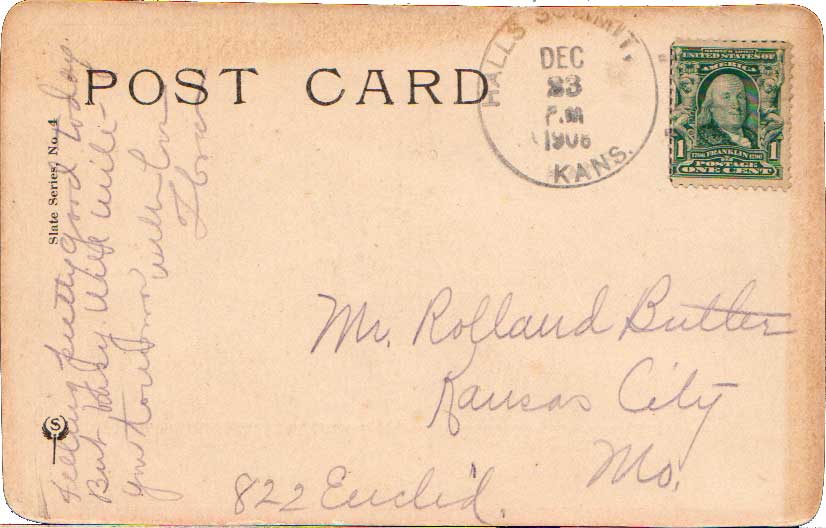 POST CARD
HALLS SUMMIT,
DEC
23
P.M
1906
KANS.
SERIES 1902
UNITED STATES OF
AMERICA
1 1
1706 FRANKLIN 1790
POSTAGE
ONE CENT
Slate Series, No. 4
Feeling pretty good today.
But busy. Will write
you tomorrow with love
Mr. Rolland Butler
Kansas City
Mo.
822 Euclid.
S